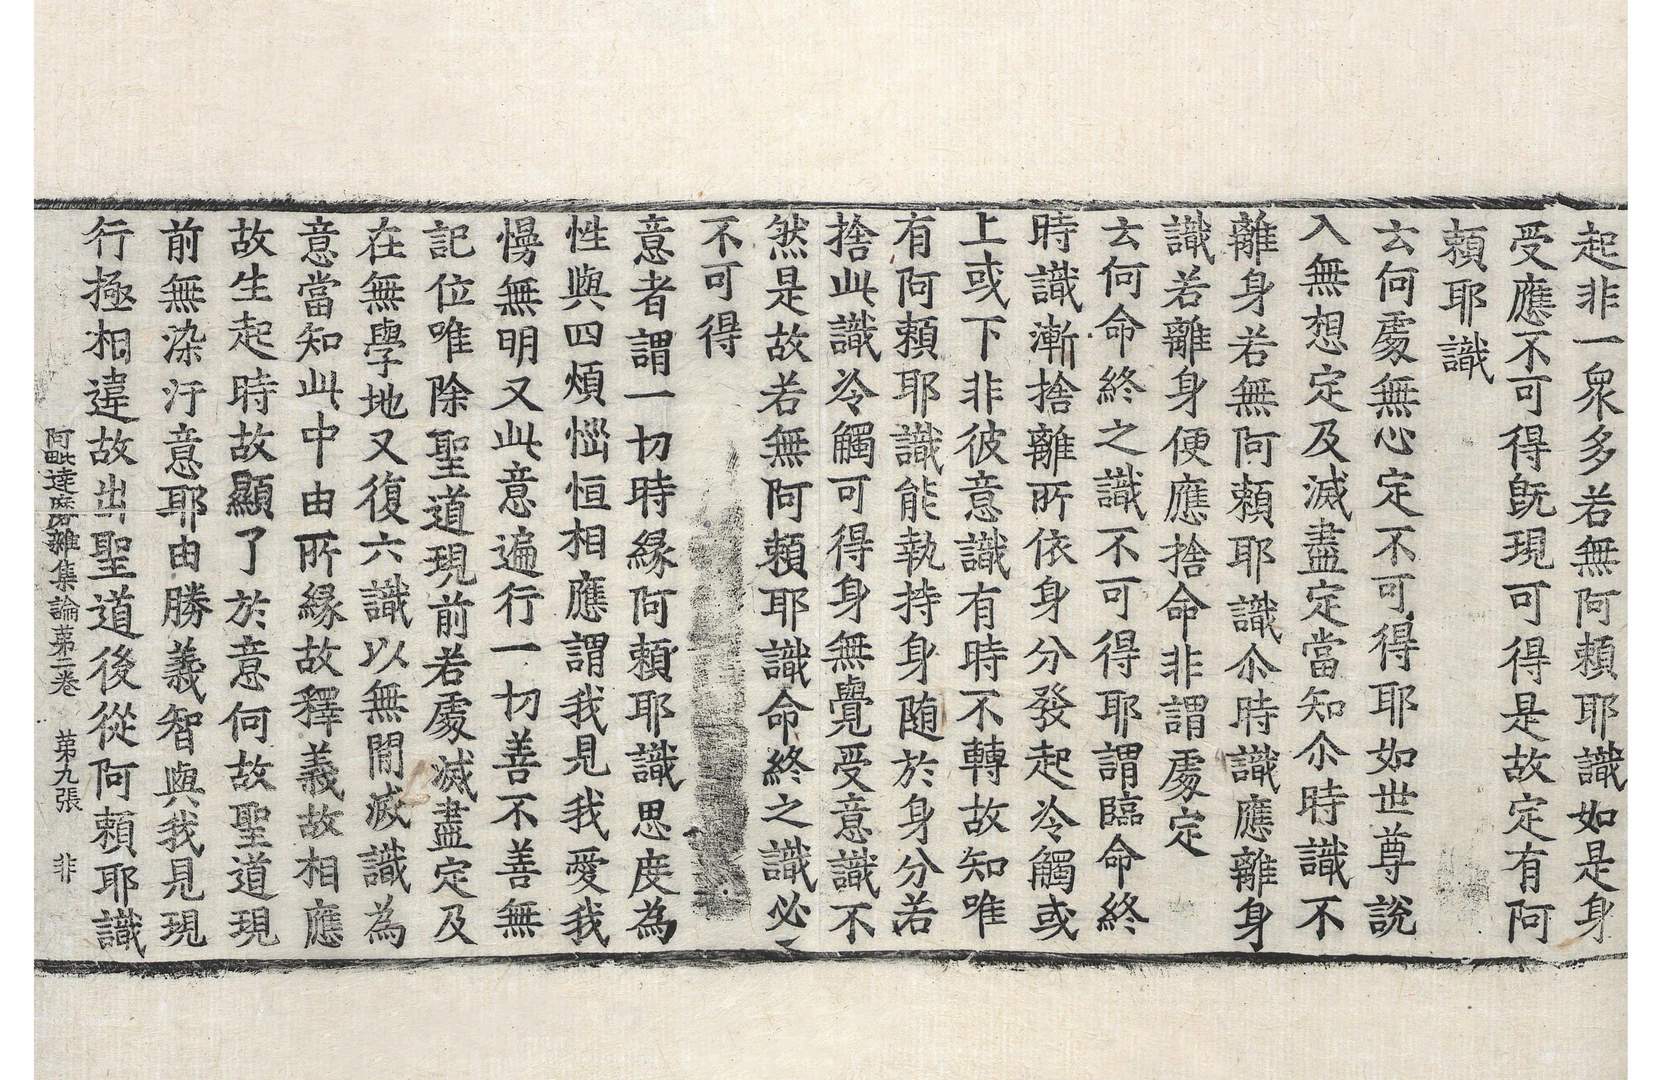 起非一衆多若無阿頼耶識如是身
受應不可得旣現可得是故定有阿
頼耶識
云何處無心定不可得耶如世尊說
入無想定及滅盡定當知尒時識不
離身若無阿頼耶識尒時識應離身
識若離身便應捨命非謂處定
云何命終之識不可得耶謂臨命終
時識漸捨離所依身分發起冷觸或
上或下非彼意識有時不轉故知唯
有阿頼耶識能執持身随於身分若
捨此識冷觸可得身無覺受意識不
然是故若無阿頼耶識命終之識必
不可得
意者謂一切時緣阿頼耶識思度為
性與四煩惱恒相應謂我見我愛我
慢無明又此意遍行一切善不善無
記位唯除聖道現前若處滅盡定及
在無學地又復六識以無閒滅識為
意當知此中由所緣故釋義故相應
故生起時故顯了於意何故聖道現
前無染汙意耶由勝義智與我見現
行極相違故出聖道後從阿頼耶識
阿毗達磨雜集論苐二卷 苐九張 非